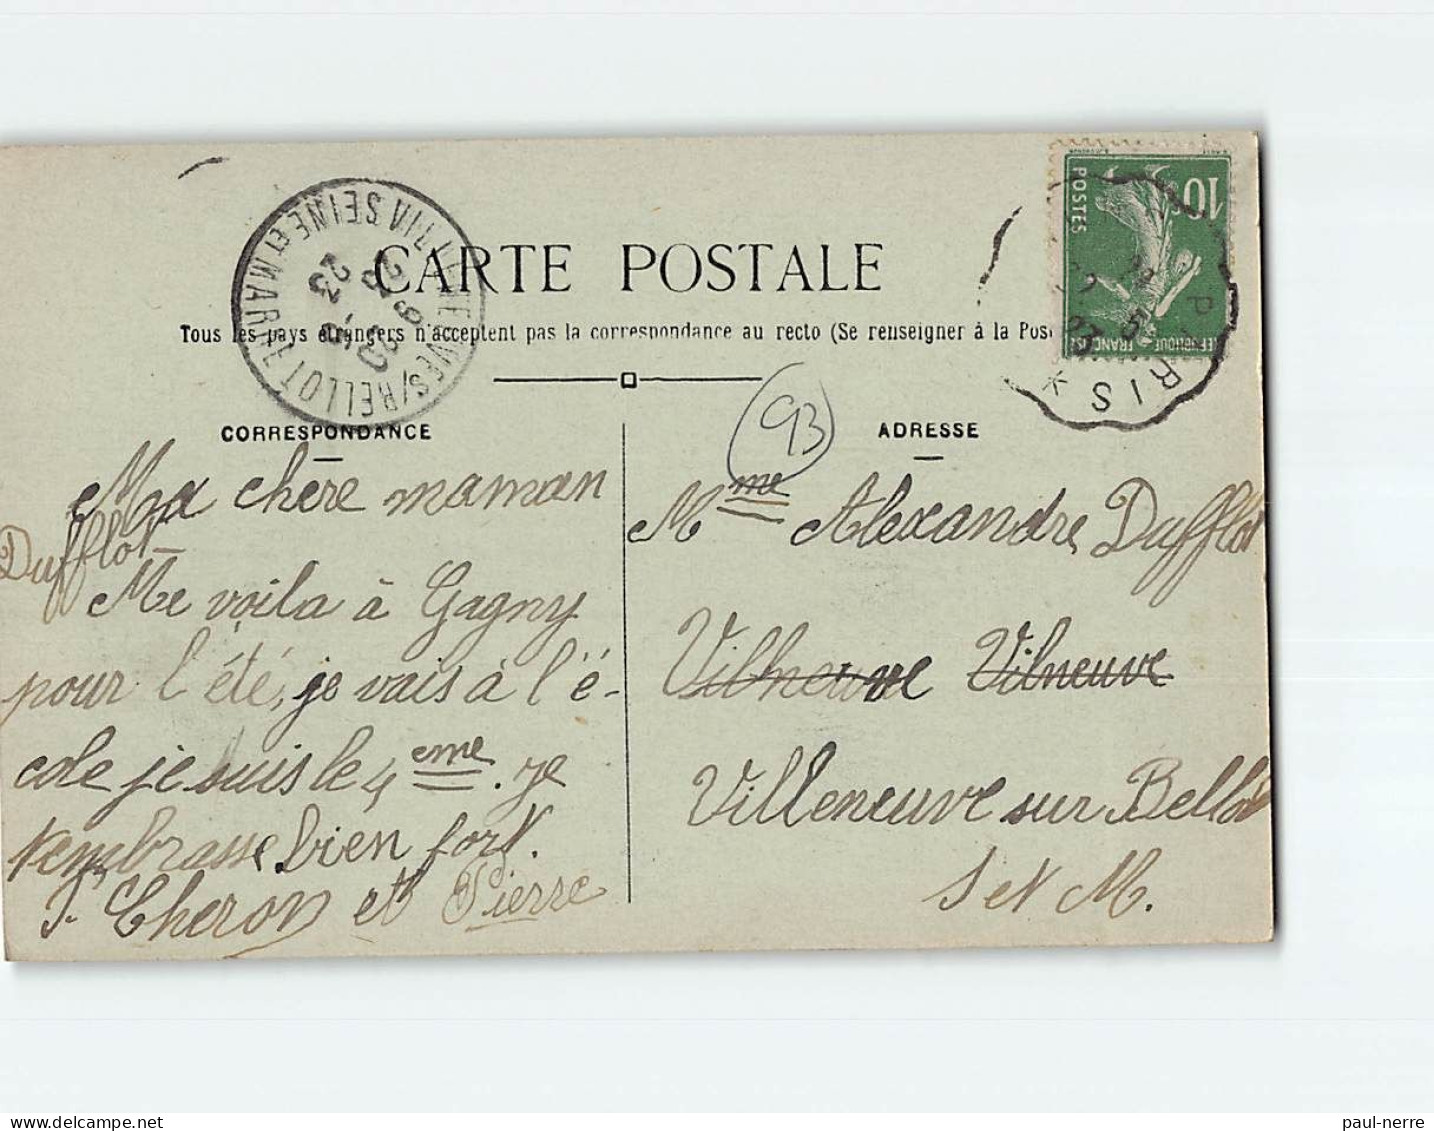 CARTE POSTALE
Tous les pays étrangers n'acceptent pas la correspondance au recto (Se renseigner à la Pos
VILLENEUVE S/BELLOT SEINE ET MARNE
23
10
POSTES
REPUBLIQUE FRANÇAISE
PARIS
CORRESPONDANCE
Ma chère maman
Dufflot
Me voila à Gagny
pour l'été, je vais à l'é-
cole je suis le 4 eme. je
t'embrasse bien fort.
P. Cheron et Pierre
93
ADRESSE
Mme Alexandre Dufflot
Vilneuve Vilneuve
Villeneuve sur Bellot
S et M.
paul-nerre